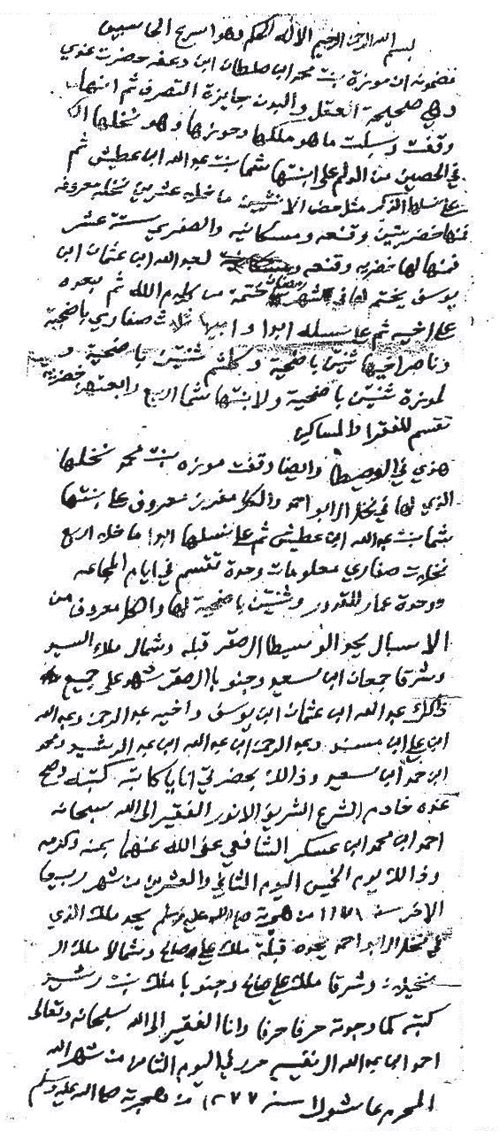 بسم الله الرحمن الرحيم الاله الحكم وهو اسرع الحاسبين
مضمونه ان مويزة بنت محمد ابن سلطان ابن دعفر حضرت عندي
وهي صحيحة العقل والبدن جايزة التصرف ثم انها
وقفت وسبلت ما هو ملكها وحوزها وهو نخلها
في الحصين من الولم على ابنتها شما بنت عبدالله ابن عطيش ثم
على نسلها الذكر مثل حض الانثيين ما خلا عشرين نخله معروفه
منها خضريتين وقنعه ومسكانيه والصفري ستة عشر
فمنها لها خضريه وقنعه لعبدالله ابن عثمان ابن
يوسف يختم لها في شهر رمضان ختمة من كلام الله ثم بعده
على اخيه ثم على نسله ابدا وابيها ثلاث صفاري باضحية
وناصر اخيها ثنتين باضحية وكلثم ثنتين باضحية و
لمويزة ثنتين باضحية ولابنتها شما اربع ورابعتهن خضريه
تقسم للفقرا والمساكين
هذي في الوسيطا وايضا وقفت مويزه بنت محمد نخلها
الذي لها في نخل ال ابو احمد والكل مفرز معروف على بنتها
شما بنت عبدالله ابن عطيش ثم على نسلها ابدا ما خلا اربع
نخلات صفاري معلومات وحدة تقسم في ايام المجاعه
ووحدة عمار للقدور وثنتين باضحية لها واهلها معروف من
الاسبال يحد الوسيطا الصقر قبله وشمال ملاء السيد
وشرقا جعان ابن سعيد وجنوبا الصقر شهد على جميع
ذالك عبدالله ابن عثمان ابن يوسف واخيه عبدالرحمن وعبدالله
ابن علي ابن مسند وعبدالرحمن ابن عبدالله ابن عبد الرشيد ومحمد
ابن حمد ابن سعيد وذالك بحضرتي انا ياكاتبه كتبته وصح
عنده خادم الشرع الشريف الانور الفقير الى الله سبحانه
احمد ابن محمد ابن عسكر الشافعي عفى الله عنهما بمنه وكرمه
وذالك يوم الخميس اليوم الثاني والعشرين من شهر ربيع
الاخر سنة ١١٧١ من هجرته صلى الله عليه وسلم يحد ملك الذي
في نخل ال ابو احمد يحده قبلة ملك علي صالح وشمالا ملك ال
نخيلان وشرقا ملك علي صالح وجنوبا ملك بنت رشيد
كتبته كما وجدته حرفا حرفا وانا الفقير الى الله سبحانه وتعالى
احمد ابن عبدالله ال نفيسه حرر في اليوم الثامن من شهر الله
المحرم عاشورا سنة ١٢٧٧ من هجرته صلى الله عليه وسلم